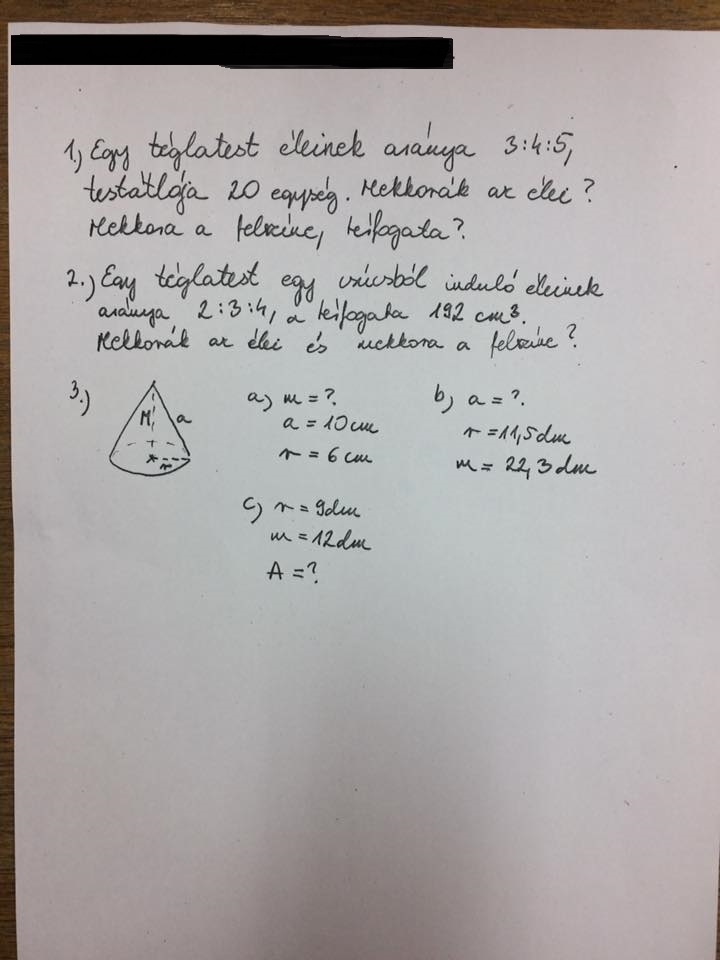 1.) Egy téglatest éleinek aránya 3:4:5,
testátlója 20 egység. Mekkorák az élei?
Mekkora a felszíne, térfogata?
2.) Egy téglatest egy csúcsból induló éleinek
aránya 2:3:4, a térfogata 192 cm³.
Mekkorák az élei és mekkora a felszíne?
3.)
M a
r
a) m = ?
a = 10 cm
r = 6 cm
b) a = ?
r = 11,5 dm
m = 22,3 dm
c) r = 9 dm
m = 12 dm
A = ?